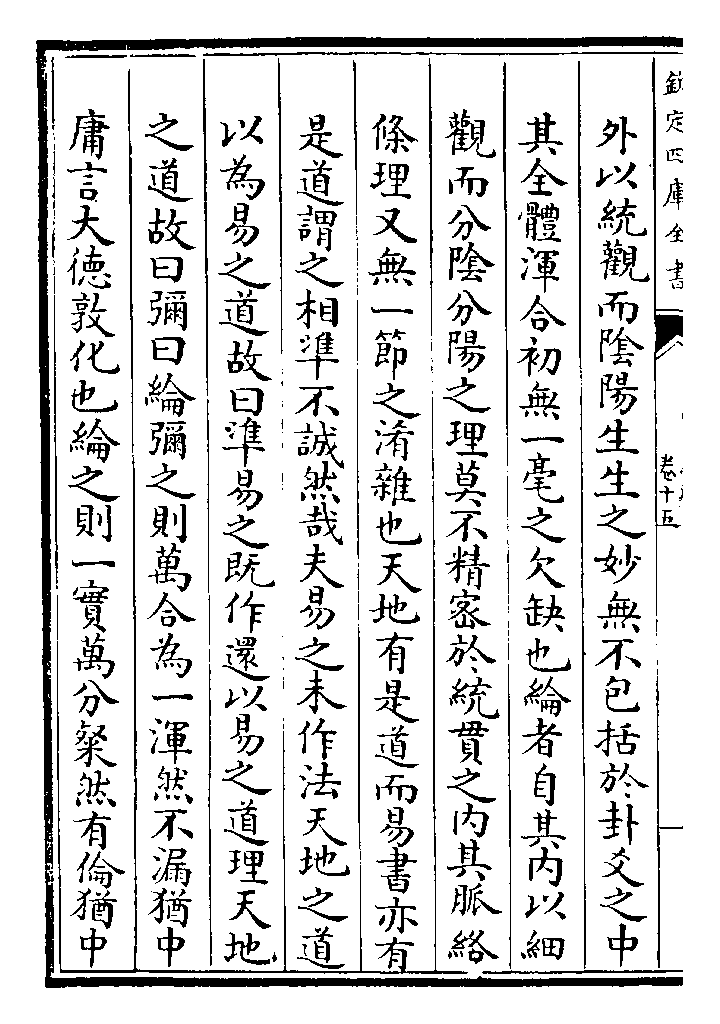 欽定四庫全書
卷十五
外以統觀而陰陽生生之妙無不包括於卦爻之中
其全體渾合初無一毫之欠缺也綸者自其内以細
觀而分陰分陽之理莫不精密於統貫之内其脈絡
條理又無一節之淆雜也天地有是道而易書亦有
是道謂之相準不誠然哉夫易之未作法天地之道
以為易之道故曰準易之既作還以易之道理天地
之道故曰彌曰綸彌之則萬合為一渾然不漏猶中
庸言大德敦化也綸之則一實萬分粲然有倫猶中